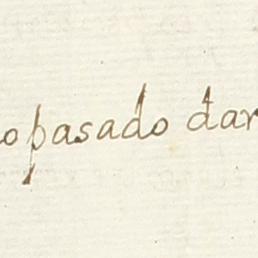 opasado dar